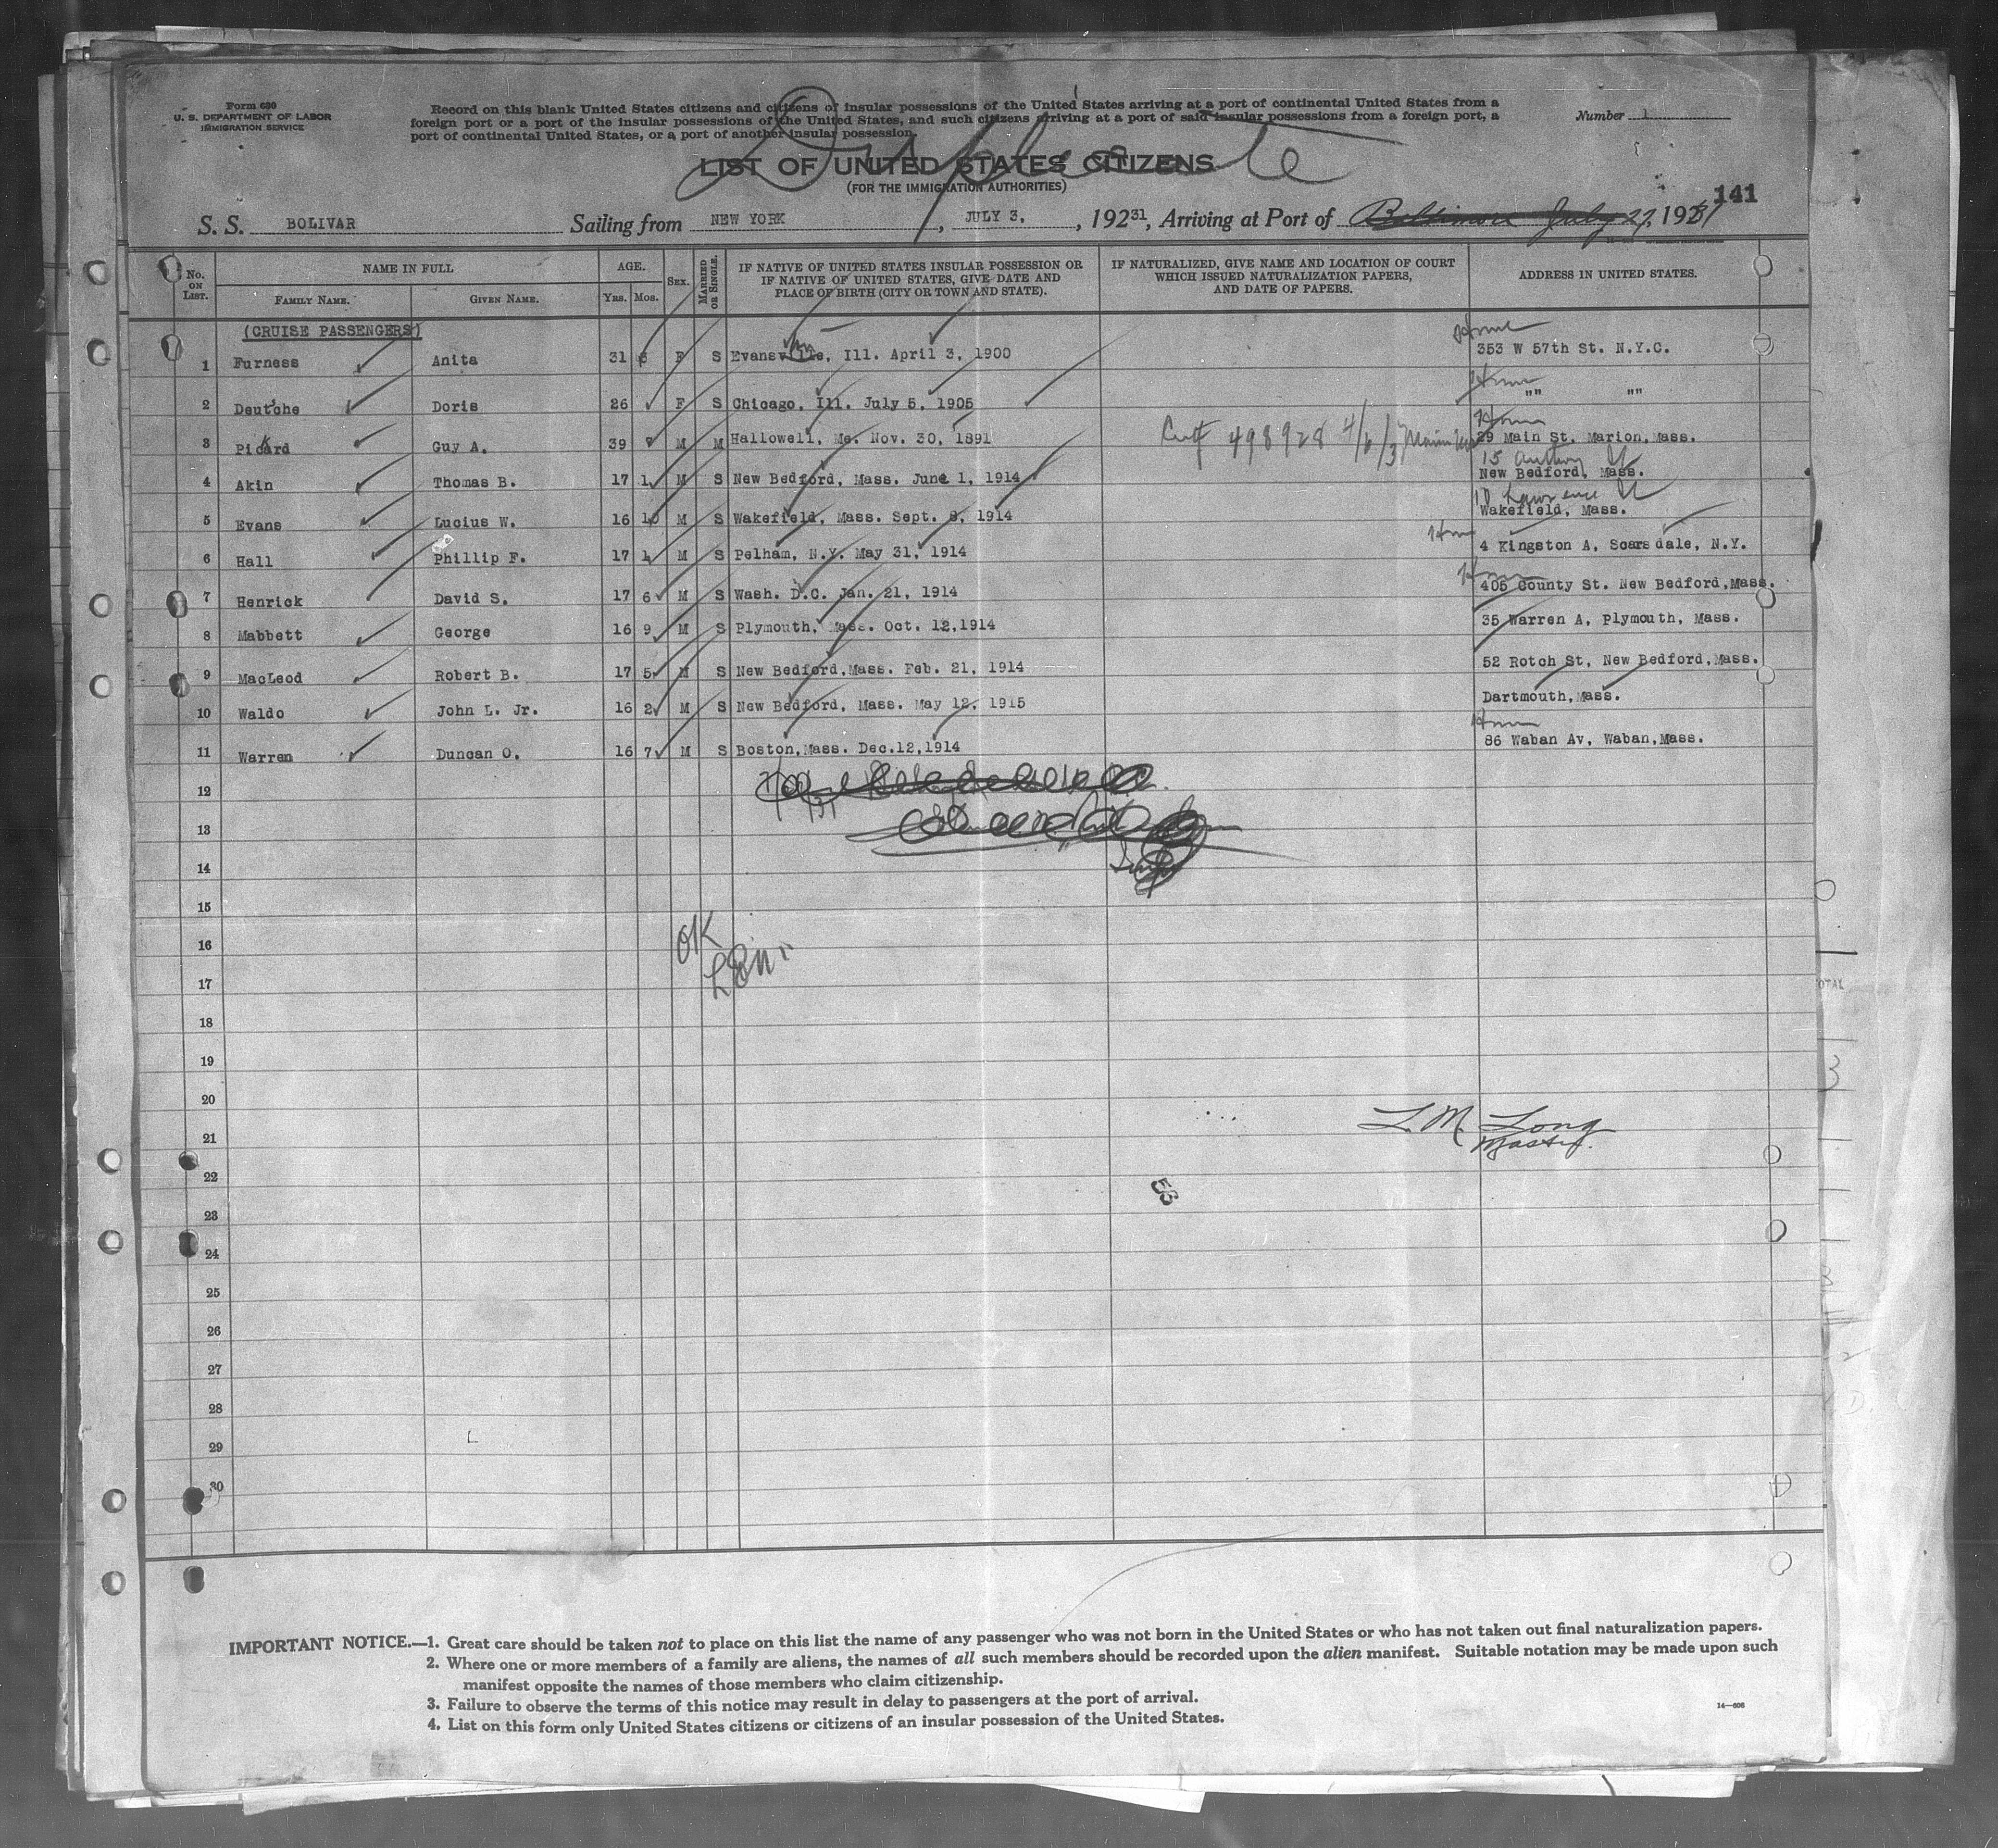 Form 630
U. S. DEPARTMENT OF LABOR
IMMIGRATION SERVICE
Record on this blank United States citizens and citizens of insular possessions of the United States arriving at a port of continental United States from a
foreign port or a port of the insular possessions of the United States, and such citizens arriving at a port of said insular possessions from a foreign port, a
port of continental United States, or a port of another insular possession.
Number 1
Duplicate
LIST OF UNITED STATES CITIZENS
(FOR THE IMMIGRATION AUTHORITIES)
141
S. S. BOLIVAR Sailing from NEW YORK, JULY 3, 19231, Arriving at Port of Baltimore July 27, 1931
No. ON LIST. NAME IN FULL AGE. SEX. MARRIED OR SINGLE. IF NATIVE OF UNITED STATES INSULAR POSSESSION OR IF NATIVE OF UNITED STATES, GIVE DATE AND PLACE OF BIRTH (CITY OR TOWN AND STATE). IF NATURALIZED, GIVE NAME AND LOCATION OF COURT WHICH ISSUED NATURALIZATION PAPERS, AND DATE OF PAPERS. ADDRESS IN UNITED STATES.
FAMILY NAME. GIVEN NAME. YRS. MOS.
(CRUISE PASSENGERS)
1 Furness Anita 31 F S Evansville, Ill. April 3, 1900 353 W 57th St. N.Y.C.
2 Deutche Doris 26 F S Chicago, Ill. July 5, 1905 "" ""
3 Pickard Guy A. 39 M M Hallowell, Me. Nov. 30, 1891 498928 29 Main St. Marion, Mass.
15
4 Akin Thomas B. 17 1 M S New Bedford, Mass. June 1, 1914 New Bedford, Mass.
Lawrence St
5 Evans Lucius W. 16 10 M S Wakefield, Mass. Sept. 8, 1914 Wakefield, Mass.
6 Hall Phillip F. 17 1 M S Pelham, N.Y. May 31, 1914 4 Kingston A, Scarsdale, N.Y.
7 Henrick David S. 17 6 M S Wash. D.C. Jan. 21, 1914 405 County St. New Bedford, Mass.
8 Mabbett George 16 9 M S Plymouth, Mass. Oct. 12, 1914 35 Warren A, Plymouth, Mass.
9 MacLeod Robert B. 17 5 M S New Bedford, Mass. Feb. 21, 1914 52 Rotch St, New Bedford, Mass.
10 Waldo John L. Jr. 16 2 M S New Bedford, Mass. May 12, 1915 Dartmouth, Mass.
11 Warren Duncan O. 16 7 M S Boston, Mass. Dec. 12, 1914 86 Waban Av, Waban, Mass.
12
13
14
15
16 OK
17
18
19
20
L. M. Long
21 Master.
22
56
23
24
25
26
27
28
29
30
IMPORTANT NOTICE.—1. Great care should be taken not to place on this list the name of any passenger who was not born in the United States or who has not taken out final naturalization papers.
2. Where one or more members of a family are aliens, the names of all such members should be recorded upon the alien manifest. Suitable notation may be made upon such
manifest opposite the names of those members who claim citizenship.
3. Failure to observe the terms of this notice may result in delay to passengers at the port of arrival.
4. List on this form only United States citizens or citizens of an insular possession of the United States.
14—606